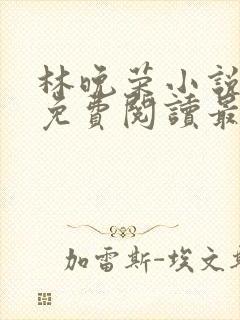 林晚荣小說
免費閱讀最
加雷斯-埃文斯